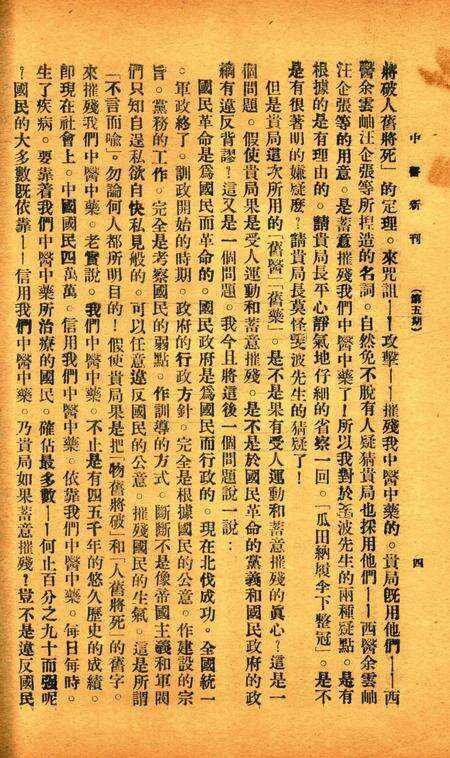 中醫新刊
（第五期）
四
將破人舊將死」的定理。來咒詛——攻擊——摧殘我中醫中藥的。貴局既用他們——西
醫余雲岫汪企張等所揑造的名詞。自然免不脫有人疑猜貴局也採用他們——西醫余雲岫
汪企張等的用意。是蓄意摧殘我們中醫中藥了！所以我對於雯波先生的兩種疑點。是有
根據的是有理由的。請貴局長平心靜氣地仔細的省察一回。「瓜田納履李下整冠」。是不
是有很著明的嫌疑麽？請貴局長莫怪雯波先生的猜疑了！
但是貴局這次所用的「舊醫」「舊藥」。是不是果有受人運動和蓄意摧殘的眞心？這是一
個問題。假使貴局果是受人運動和蓄意摧殘。是不是於國民革命的黨義和國民政府的政
綱有違反背謬？這又是一個問題。我今且將這後一個問題說一說：
國民革命是爲國民而革命的。國民政府是爲國民而行政的。現在北伐成功。全國統一
。軍政終了。訓政開始的時期。政府的行政方針。完全是根據國民的公意。作建設的宗
旨。黨務的工作。完全是考察國民的弱點。作訓導的方式。斷斷不是像帝國主義和軍閥
們只知自逞私欲自快私見般的。可以任意違反國民的公意。摧殘國民的生氣。這是所謂
「不言而喩」。勿論何人都所明目的！假使貴局果是把「物舊將破」和「人舊將死」的舊字。
來摧殘我們中醫中藥。老實說。我們中醫中藥。不止是有四五千年的悠久歷史的成績。
卽現在社會上。中國國民四萬萬。信用我們中醫中藥。依靠我們中醫中藥。每日每時。
生了疾病。要靠着我們中醫中藥所治療的國民。確佔最多數——何止百分之九十而强呢
？國民的大多數旣依靠——信用我們中醫中藥。乃貴局如果蓄意摧殘？豈不是違反國民